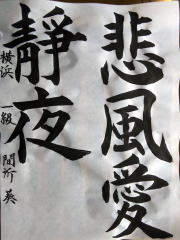 悲風愛
靜夜
横浜 一級 間所 葵